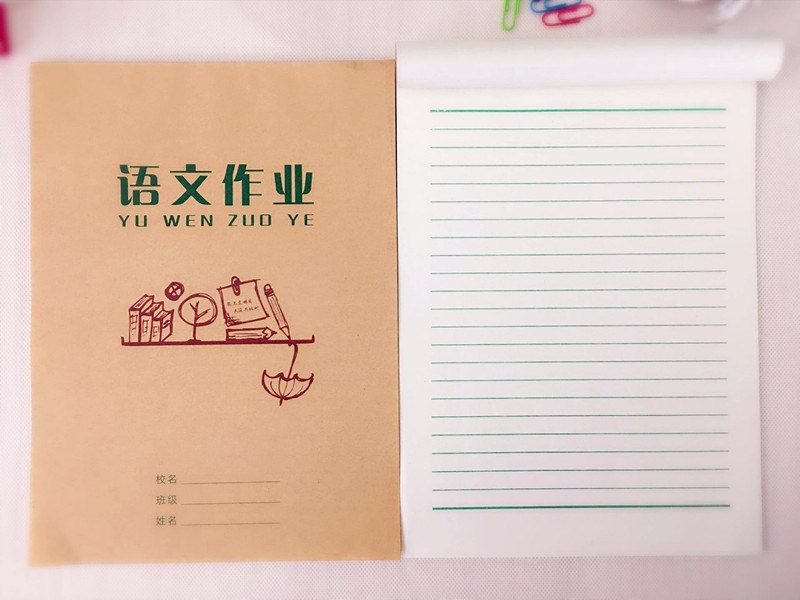 语文作业
YU WEN ZUO YE
校名
班级
姓名